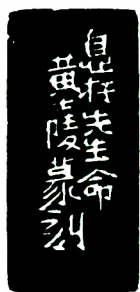 息先生命
黄士陵篆刻